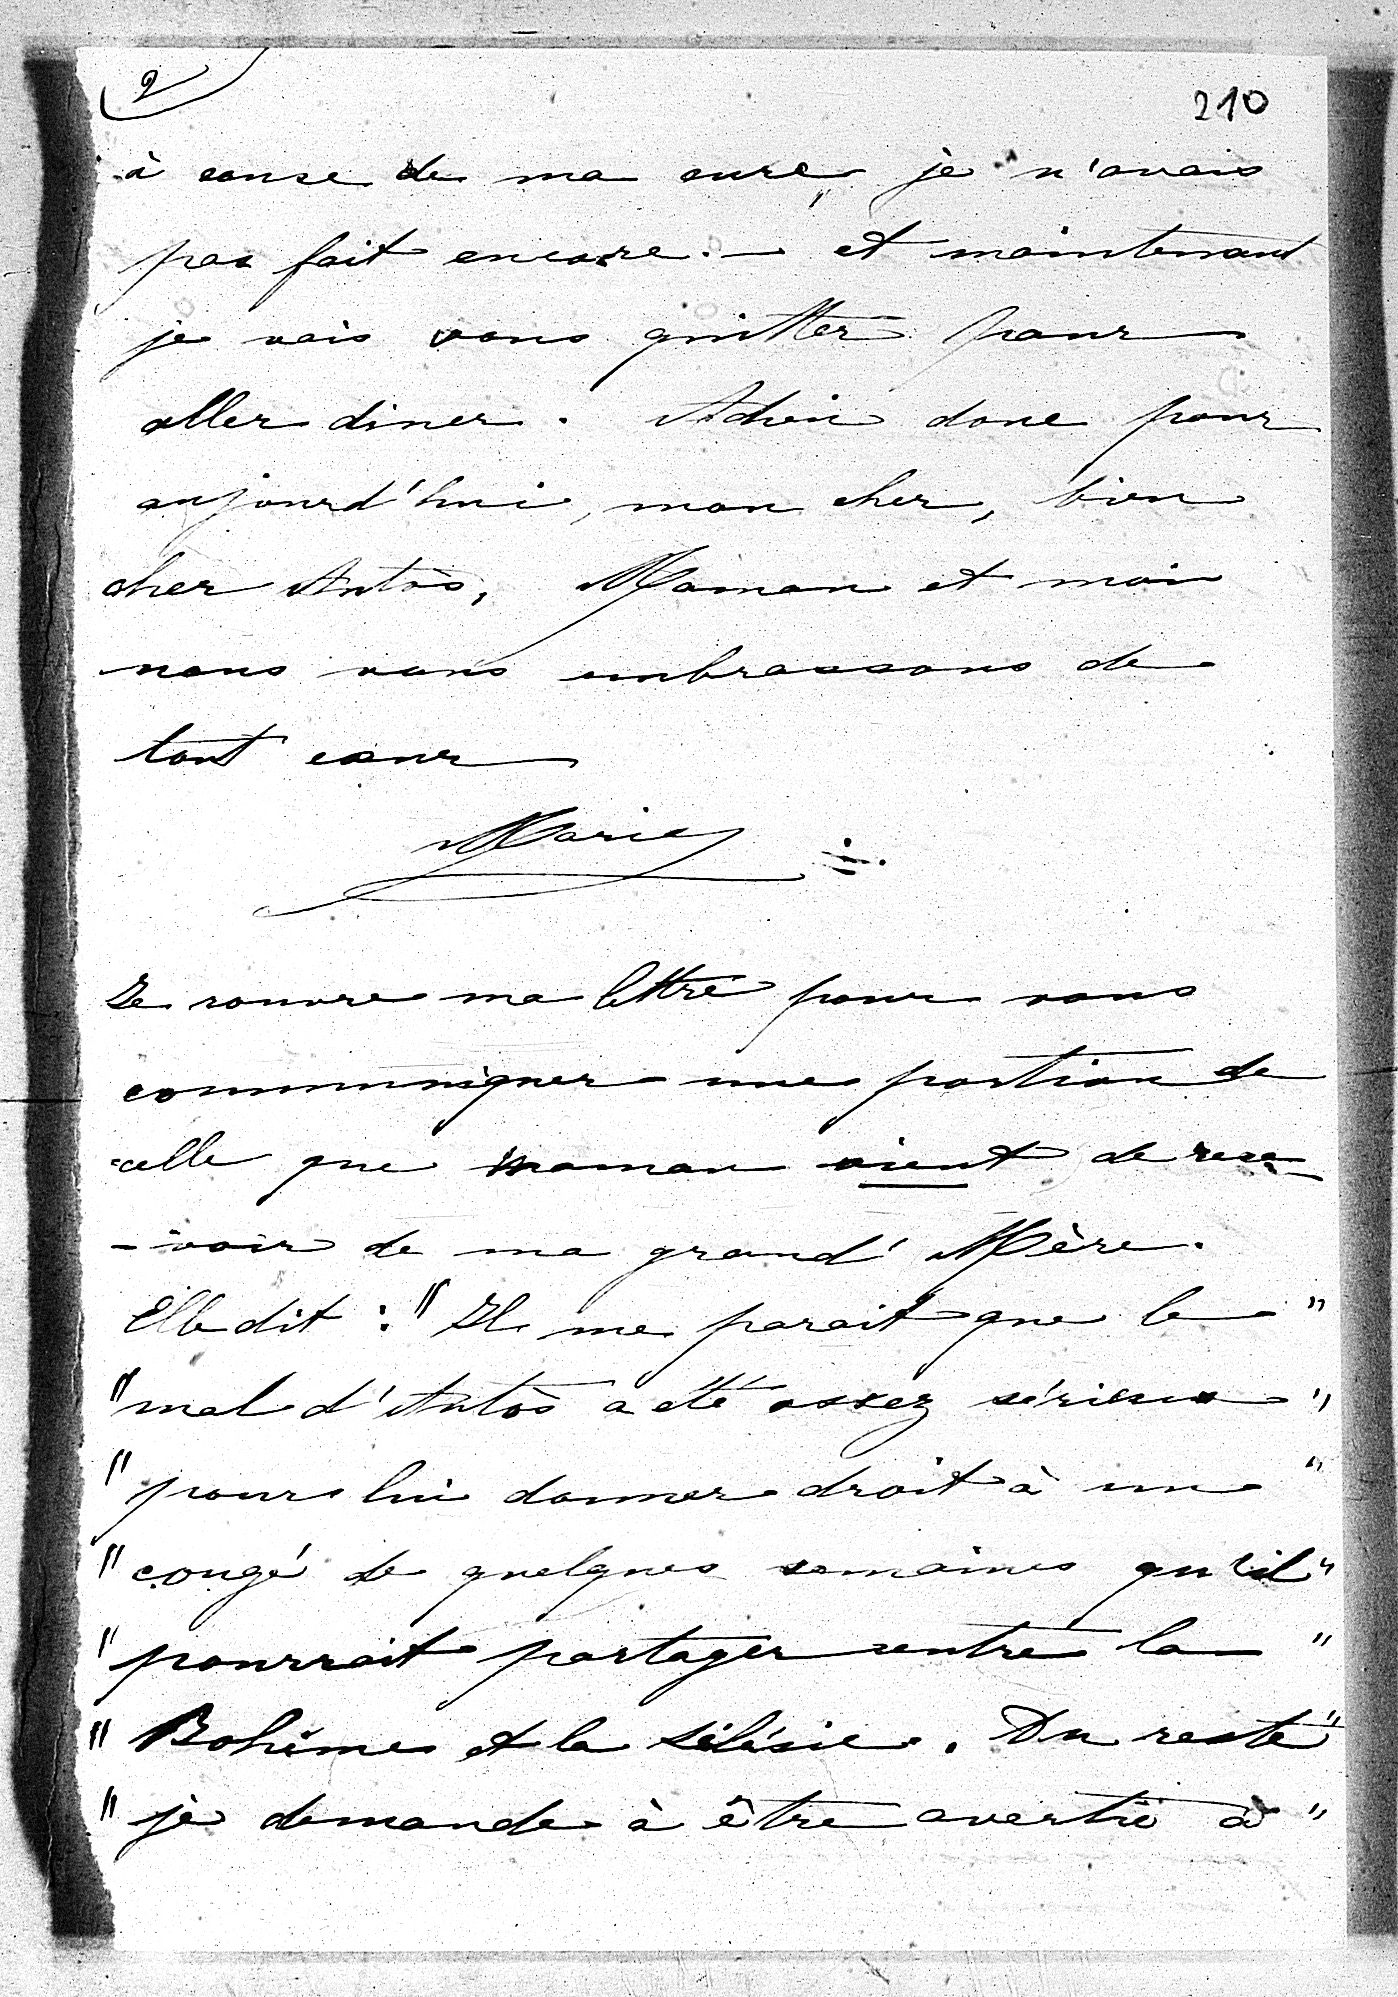 2
210
à cause de ma cure, je n'avais
pas fait encore. — et maintenant
je vais vous quitter pour
aller diner. Adieu donc pour
aujourd'hui, mon cher, bien
cher Antos, Maman et moi
nous vous embrassons de
tout cœur
Marie
Je rouvre ma lettre pour vous
communiquer une portion de
celle que maman vient de rece-
-voir de ma grand' Mère.
Elle dit : "Il me parait que le "
"mal d'Antos a été assez sérieux "
"pour lui donner droit à un "
"congé de quelques semaines qu'il "
"pourrait partager entre la "
"Bohême et la Silésie. Du reste "
"je demande à être avertie à "